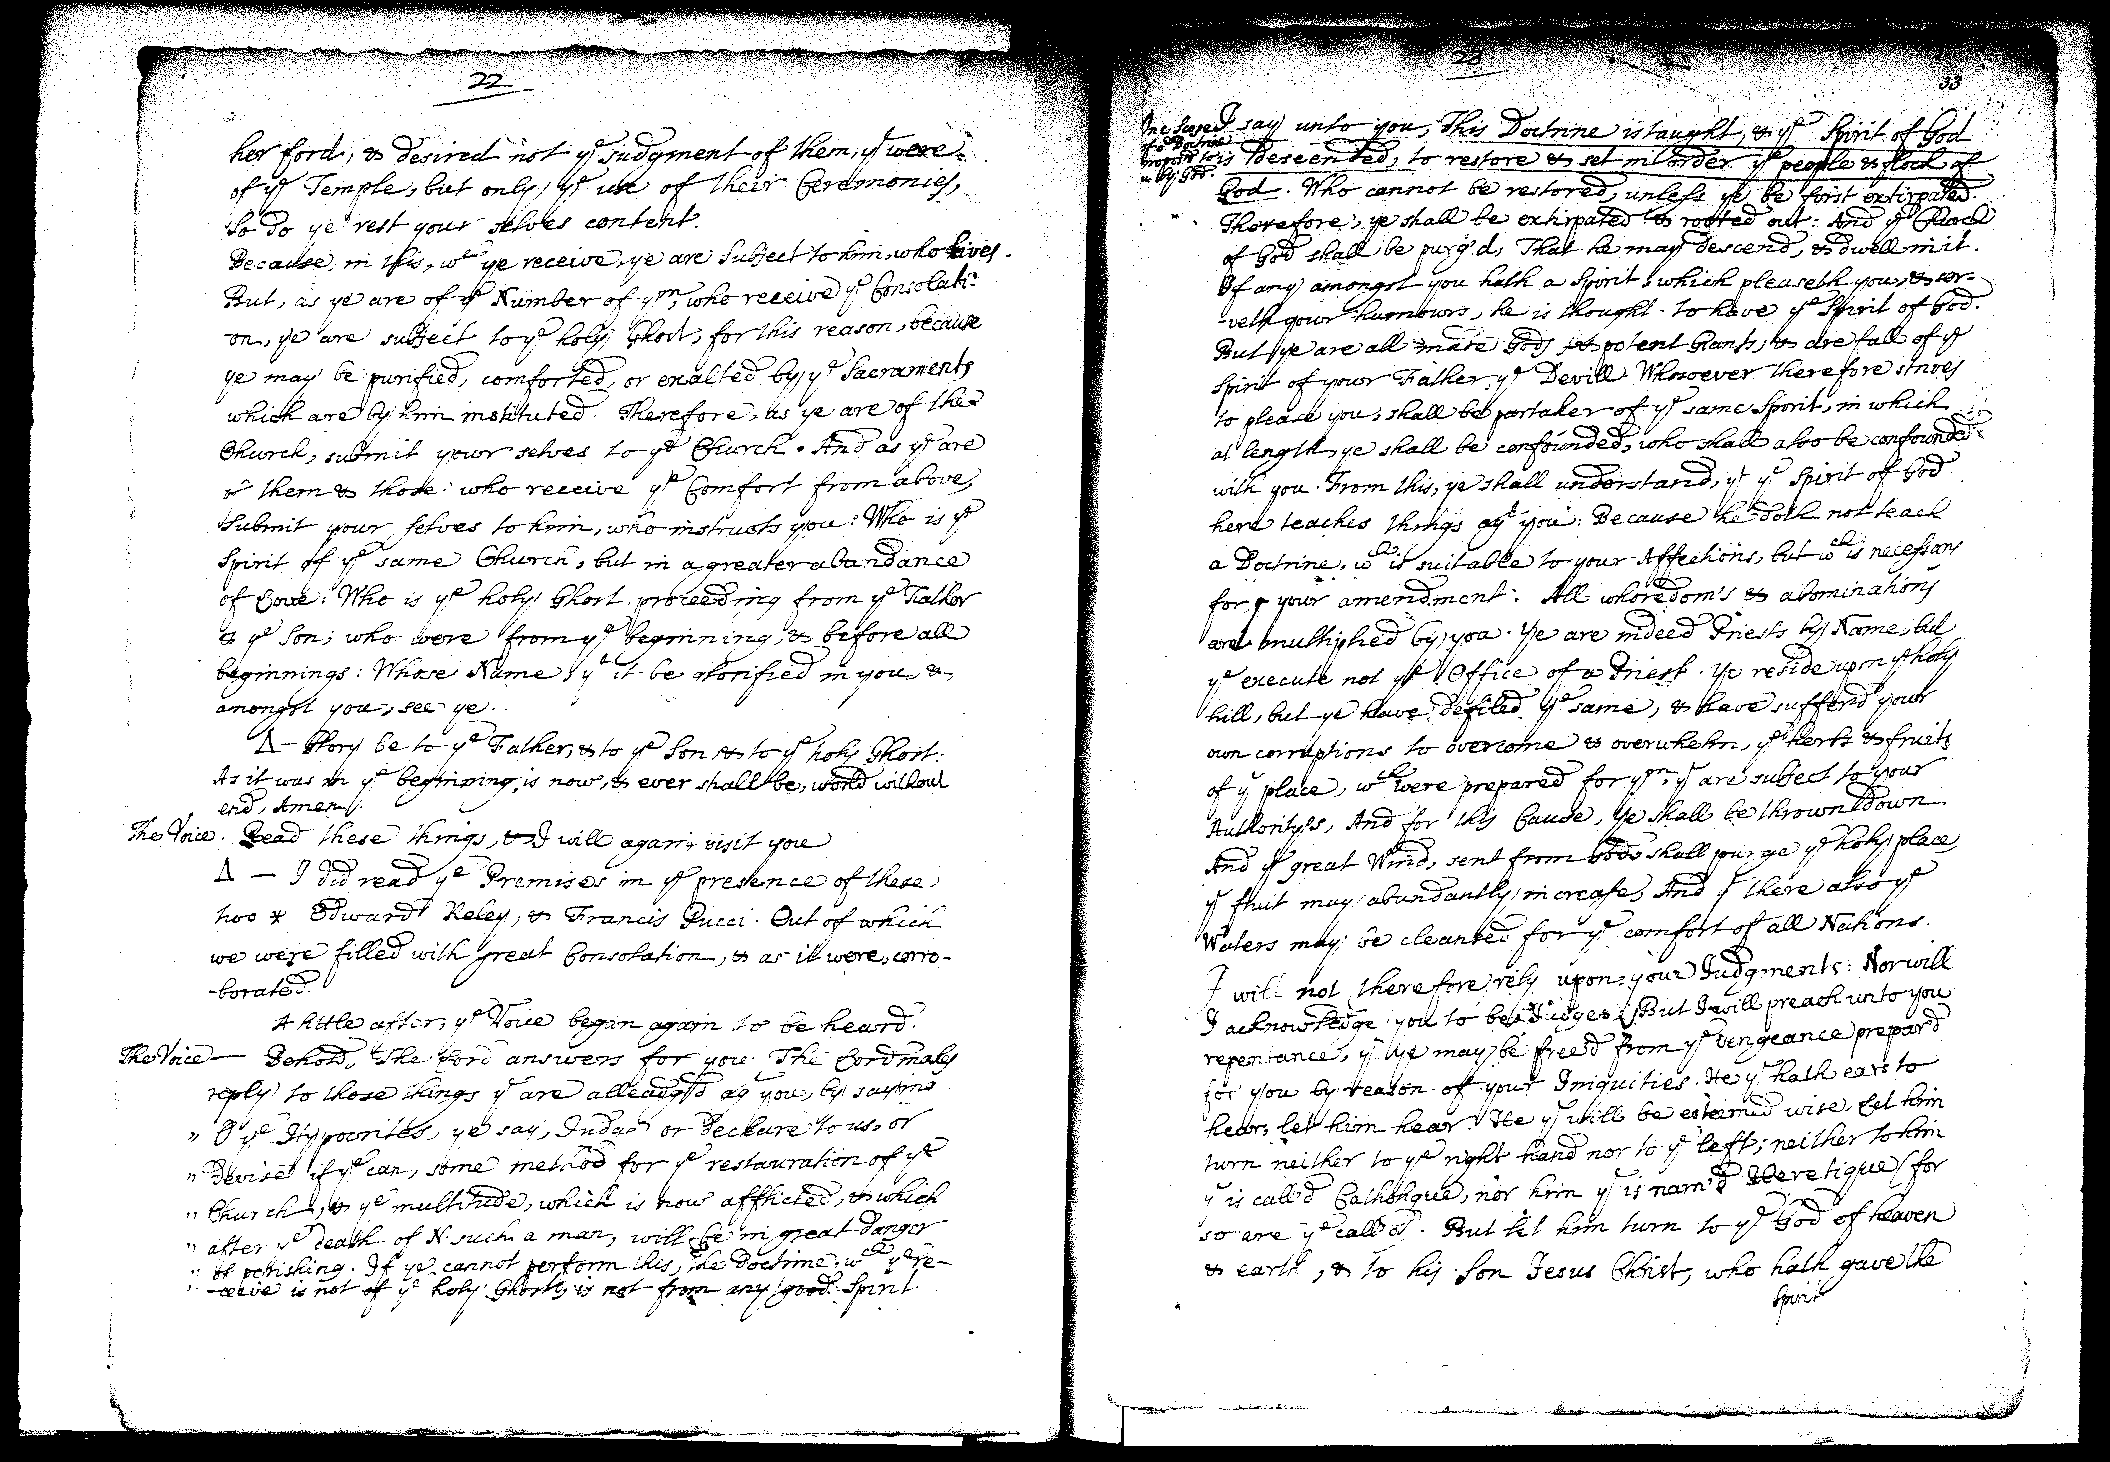 22
her ford, & desired not ye judgment of them, yt were
of ye Temple, but only ye use of their Ceremonies,
So do ye rest your selves content.
Because, in this, wch ye receive, ye are subject to him, who gives.
But, as ye are of ye Number of ym, who receive ye Consolati-
on, ye are subject to ye holy Ghost, for this reason, because
ye may be purified, comforted, or exalted by ye Sacraments
which are by him instituted. Therefore, as ye are of the
Church, submit your selves to ye Church. And as ye are
of them & those who receive ye Comfort from above,
Submit your selves to him, who instructs you: Who is ye
Spirit of ye same Church, but in a greater abundance
of Love: Who is ye holy Ghost proceeding from ye Father
& ye Son; who were from ye beginning, & before all
beginnings: Whose Name, yt it be glorified in you &
amongst you, see ye.
Δ — Glory be to ye Father, & to ye Son & to ye holy Ghost.
As it was in ye beginning, is now, & ever shall be, world without
end, Amen.
The Voice. Read these things, & I will again visit you
Δ — I did read ye Premises in ye presence of these
two * Edward Keley, & Francis Pucci. Out of which
we were filled with great Consolation, & as it were, corro-
-borated.
A little after, ye Voice began again to be heard.
The Voice — Behold, the Lord answers for you. The Lord makes
reply to those things yt are alleadg'd agt you, by saying
" O ye Hypocrites, ye say, Judge or Declare to us, or
" Devise if ye can, some method for ye restauration of ye
" Church, & ye multitude, which is now afflicted, & which
" after ye death of N. such a man, will be in great danger
" of perishing. If ye cannot perform this, the Doctrine wch ye re-
" -ceive is not of ye holy Ghost, is not from any good Spirit
23
33
of ye Doctrine
by God.
I say unto you, This Doctrine is taught, & ye Spirit of God
is descended, to restore & set in order ye people & flock of
God. Who cannot be restored, unless ye be first extirpated.
Therefore, ye shall be extirpated & rooted out: And ye Church
of God shall be purg'd, That he may descend, & dwell in it.
If any amongst you hath a Spirit, which pleaseth you, & ser-
-veth your humours, he is thought to have ye Spirit of God.
But ye are all made Gods & potent Giants, & are full of ye
Spirit of your Father ye Devill. Whosoever therefore strives
to please you, shall be partaker of ye same Spirit, in which
at length ye shall be confounded, who shall also be confounded
with you. From this, ye shall understand, yt ye Spirit of God
here teaches things agt you: Because he doth not teach
a Doctrine, wch is suitable to your Affections, but wch is necessary
for your amendment. All whoredom's & abominations
are multiplied by you. Ye are indeed Priests by Name, but
ye execute not ye Office of a Priest. Ye reside upon ye holy
hill, but ye have defiled ye same, & have suffer'd your
own corruptions to overcome & overwhelm, ye herbs & fruits
of yt place, wch were prepared for ym, yt are subject to your
Authoritys, And for this Cause, Ye shall be thrown down
And ye great Wind, sent from God shall purge ye holy place,
yt fruit may abundantly increase, And yt there also ye
Waters may be cleansed for ye comfort of all Nations.
I will not therefore rely upon your Judgments: Nor will
I acknowledge you to be Judges, But I will preach unto you
repentance, yt ye may be freed from ye vengeance prepar'd
for you by reason of your Iniquities. He yt hath ears to
hear, let him hear. He yt will be esteemed wise, Let him
turn neither to ye right hand nor to ye left; neither to him
yt is call'd Catholique, nor him yt is nam'd Heretique (for
so are ye call'd). But let him turn to ye God of heaven
& earth, & to his Son Jesus Christ, who hath gave the
Spirit